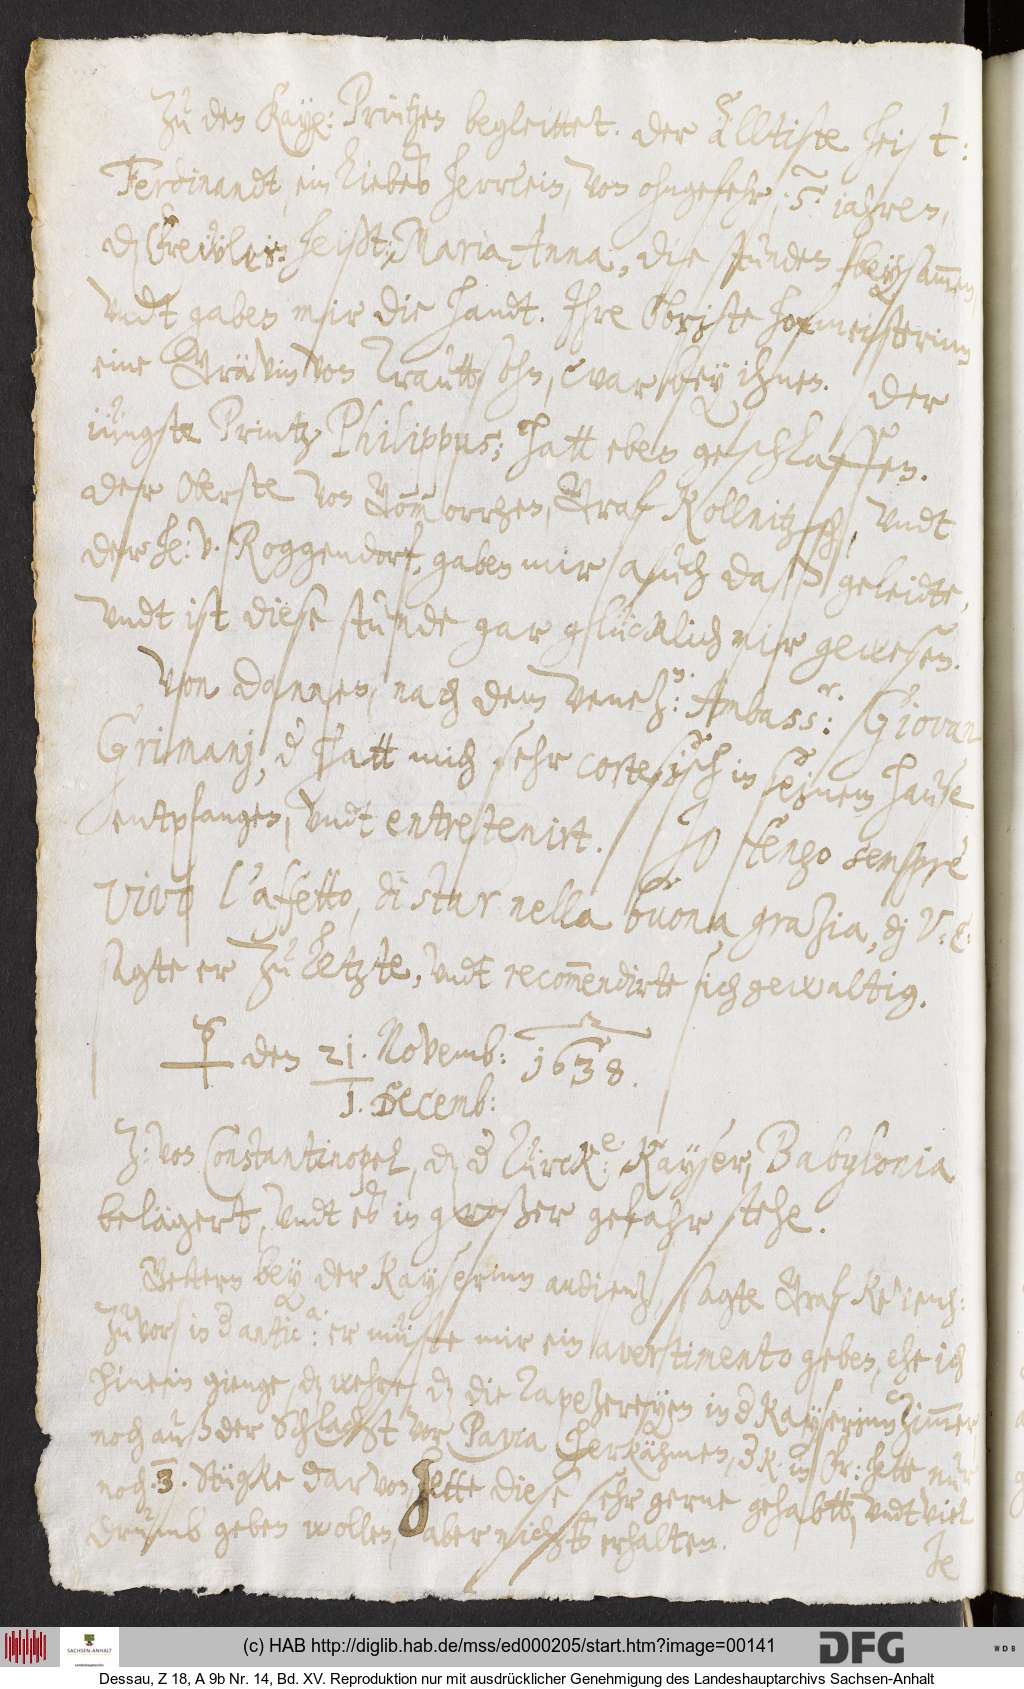 Zu den Kays: Printzen begleittet. der Älltiste heist:
Ferdinandt, ein liebes herrlein, von ohngefehr, 5. iahren,
dz Frewlein heißt: Maria Anna, die stunden beysam̄en,
vndt gaben mir die handt. Ihre Obriste hofmeisterinn
eine Grävin von Trauttsohn, war bey ihnen. der
iüngste Printz Philippus, hatt eben geschlaffen.
der Oberste von Som̄orrhen, Graf Kollnitzsch, vndt
der he: v. Roggendorf, gaben mir auch daß geleidte,
vndt ist diese stunde gar glücklich mir gewesen.
Von dannen, nach dem Venez:n Ambass:r Giovan
Grimanj, d hatt mich sehr cortesisch in seinem hause
entpfangen, vndt entretenirt. Io tengo sempre
vivo l'affetto, di star nella buona grazia, dj V. E.
sagte er zu letzte, vndt recom̄endirte sich gewaltig.
♀ den 21. Novemb: 1638.
1. Decemb:
Z: von Constantinopel, dz d Türck:e Kayser, Babylonia
belägert, vndt es in großer gefahr stehe.
Gestern bey der Kayserinn audientz, sagte Graf Kevenh:
zuvor in d antic:a er müste mir ein avertimento geben, ehe ich
hinein gienge, dz wehre dz die Tapezereyen in d Kayserinn Zim̄er
noch auß der Schlacht vor Pavia herkähmen, d K. in Fr: hette nur
noch 3. stügke darvon hette diese sehr gerne gehabtt, vndt viel
drumb geben wollen, aber nichts erhalten.
Je
(c) HAB http://diglib.hab.de/mss/ed000205/start.htm?image=00141
SACHSEN-ANHALT
DFG
WDB
Dessau, Z 18, A 9b Nr. 14, Bd. XV. Reproduktion nur mit ausdrücklicher Genehmigung des Landeshauptarchivs Sachsen-Anhalt